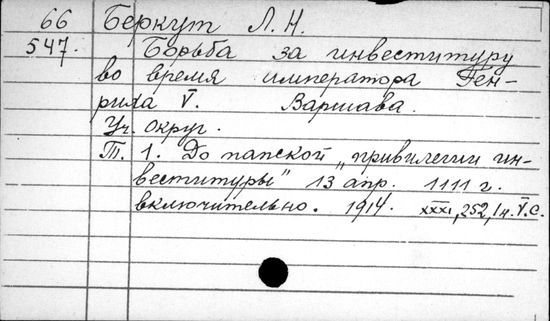 66 Беркут Л. Н.
547. Борьба за инвеституру
во время императора Ген-
риха V. Варшава.
Уч. округ.
Т. 1. До папской „привилегии ин-
веституры" 13 апр. 1111 г.
включительно. 1914. XXXI, 252, 1 н. V. с.